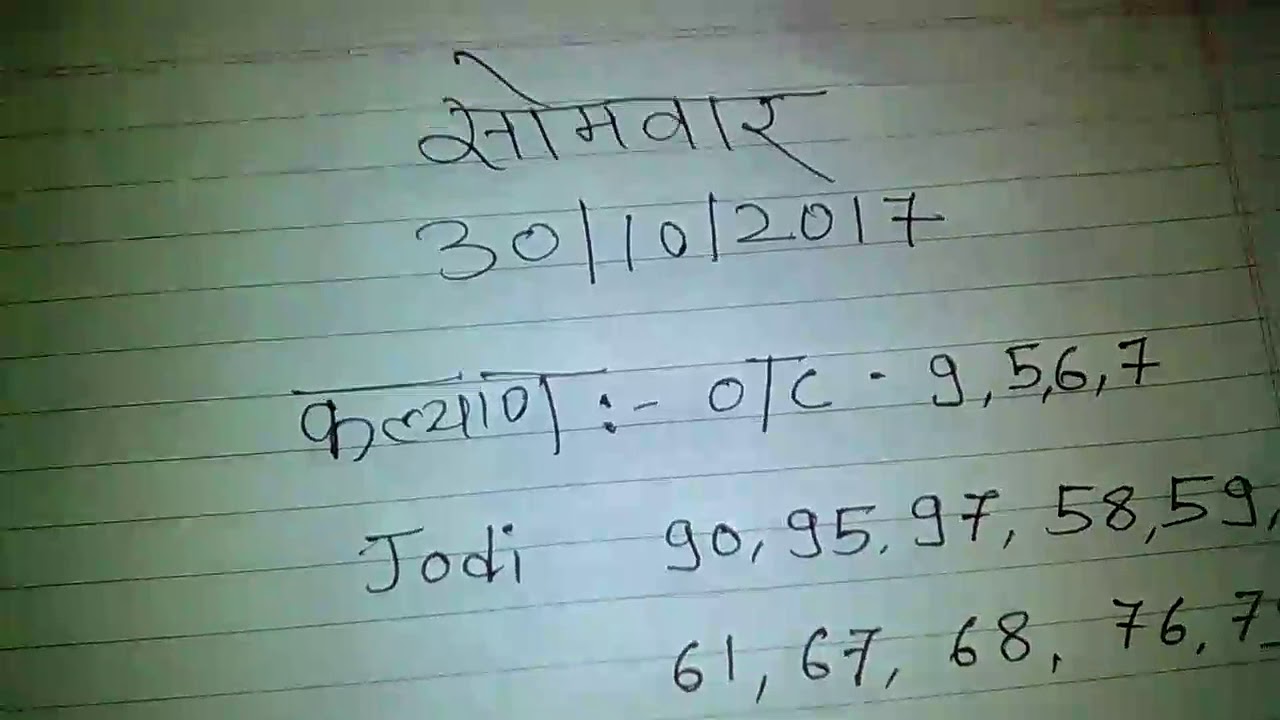 सोमवार
30/10/2017
कल्याण :- O/C - 9, 5, 6, 7
Jodi 90, 95, 97, 58, 59,
61, 67, 68, 76,